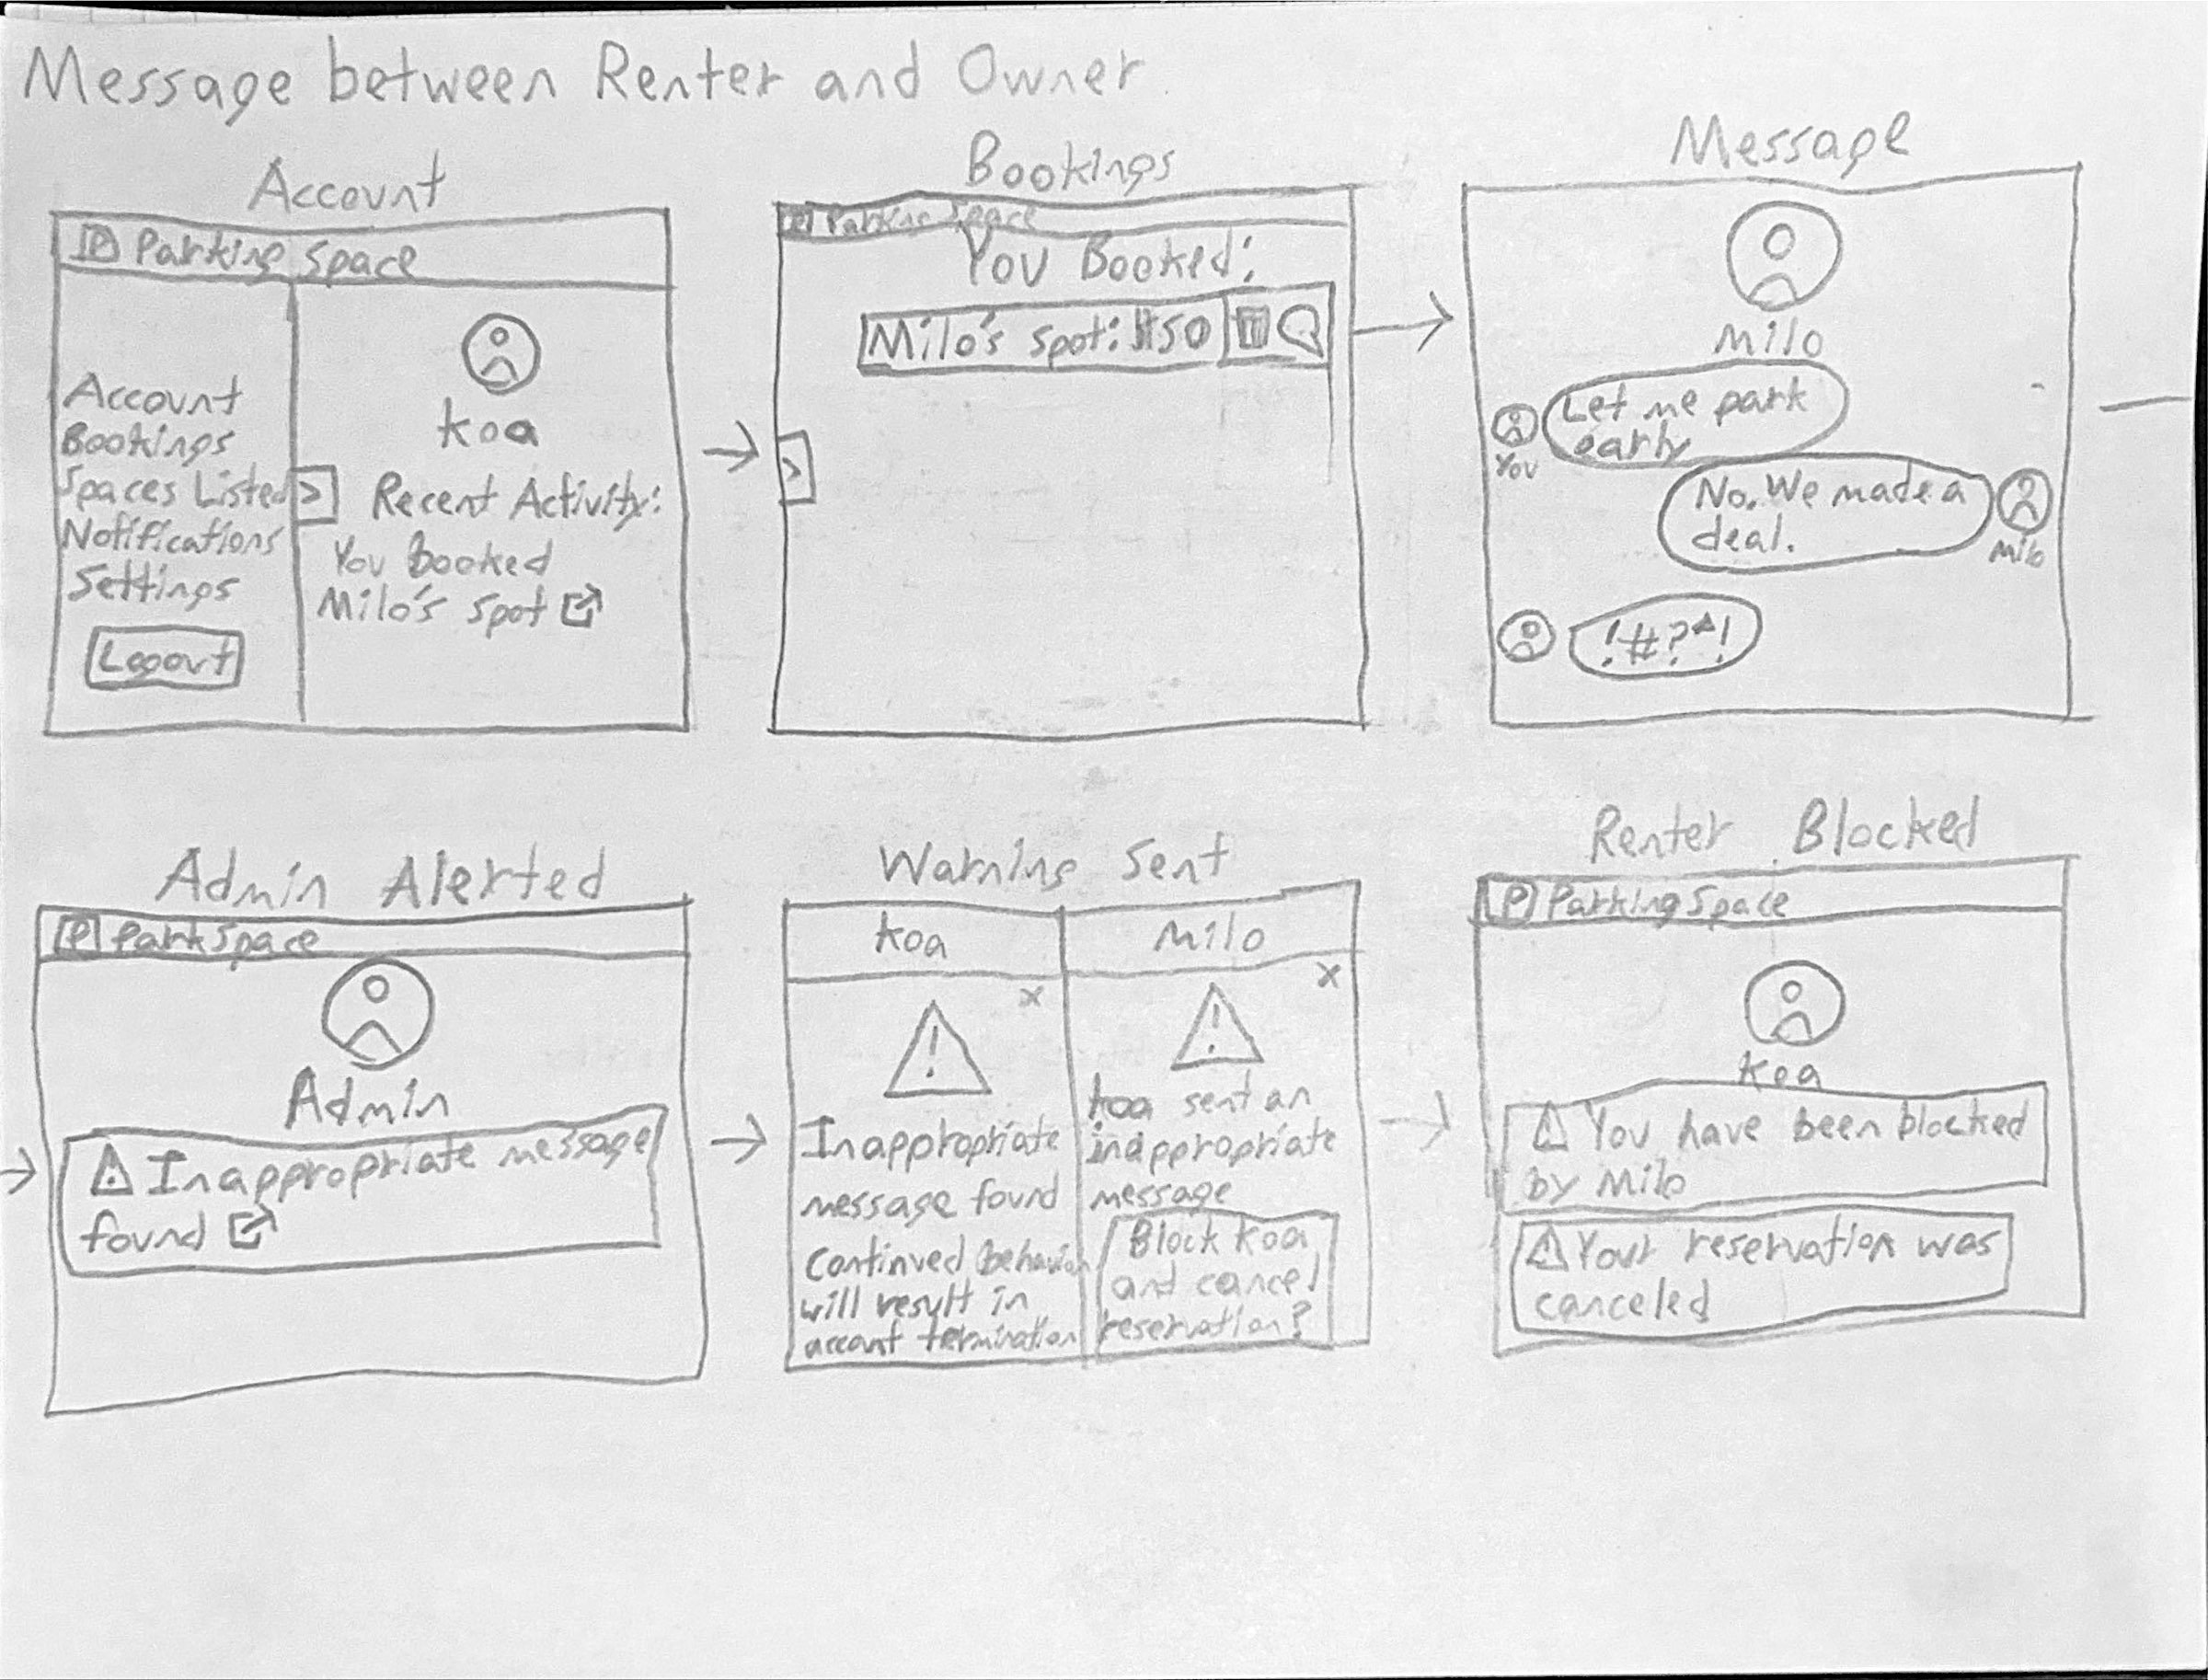 Message between Renter and Owner
Account
P Parking Space
Account
Bookings
Spaces Listed
Notifications
Settings
Logout
>
koa
Recent Activity:
You booked
Milo's spot
Bookings
P Parking Space
You Booked:
Milo's spot: $50
>
Message
Milo
Let me park
early
You
No. We made a
deal.
Milo
!#?^!
Admin Alerted
P ParkSpace
Admin
! Inappropriate message
found
Warning Sent
koa
x
!
Inappropriate
message found
continued behavior
will result in
account termination
Milo
x
!
koa sent an
inappropriate
message
Block koa
and cancel
reservation?
Renter Blocked
P Parking Space
koa
! You have been blocked
by Milo
! Your reservation was
canceled